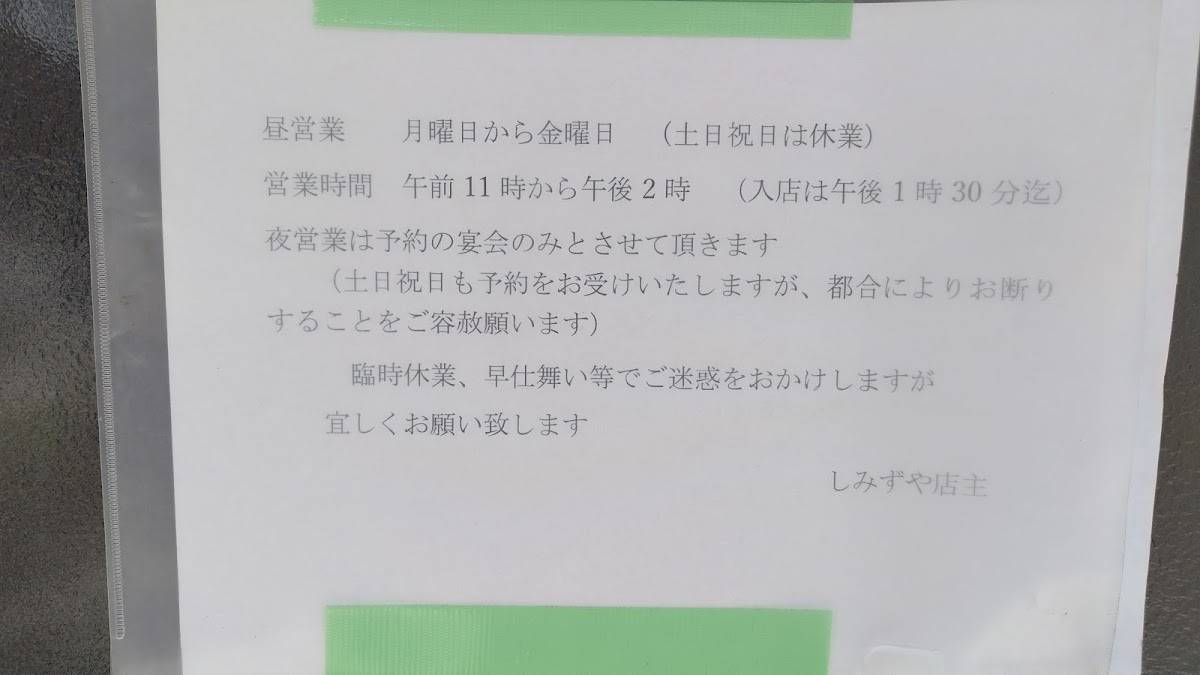 昼営業　　月曜日から金曜日　（土日祝日は休業）
営業時間　午前 11 時から午後 2 時　（入店は午後 1 時 30 分迄）
夜営業は予約の宴会のみとさせて頂きます
（土日祝日も予約をお受けいたしますが、都合によりお断り
することをご容赦願います）
臨時休業、早仕舞い等でご迷惑をおかけしますが
宜しくお願い致します
しみずや店主